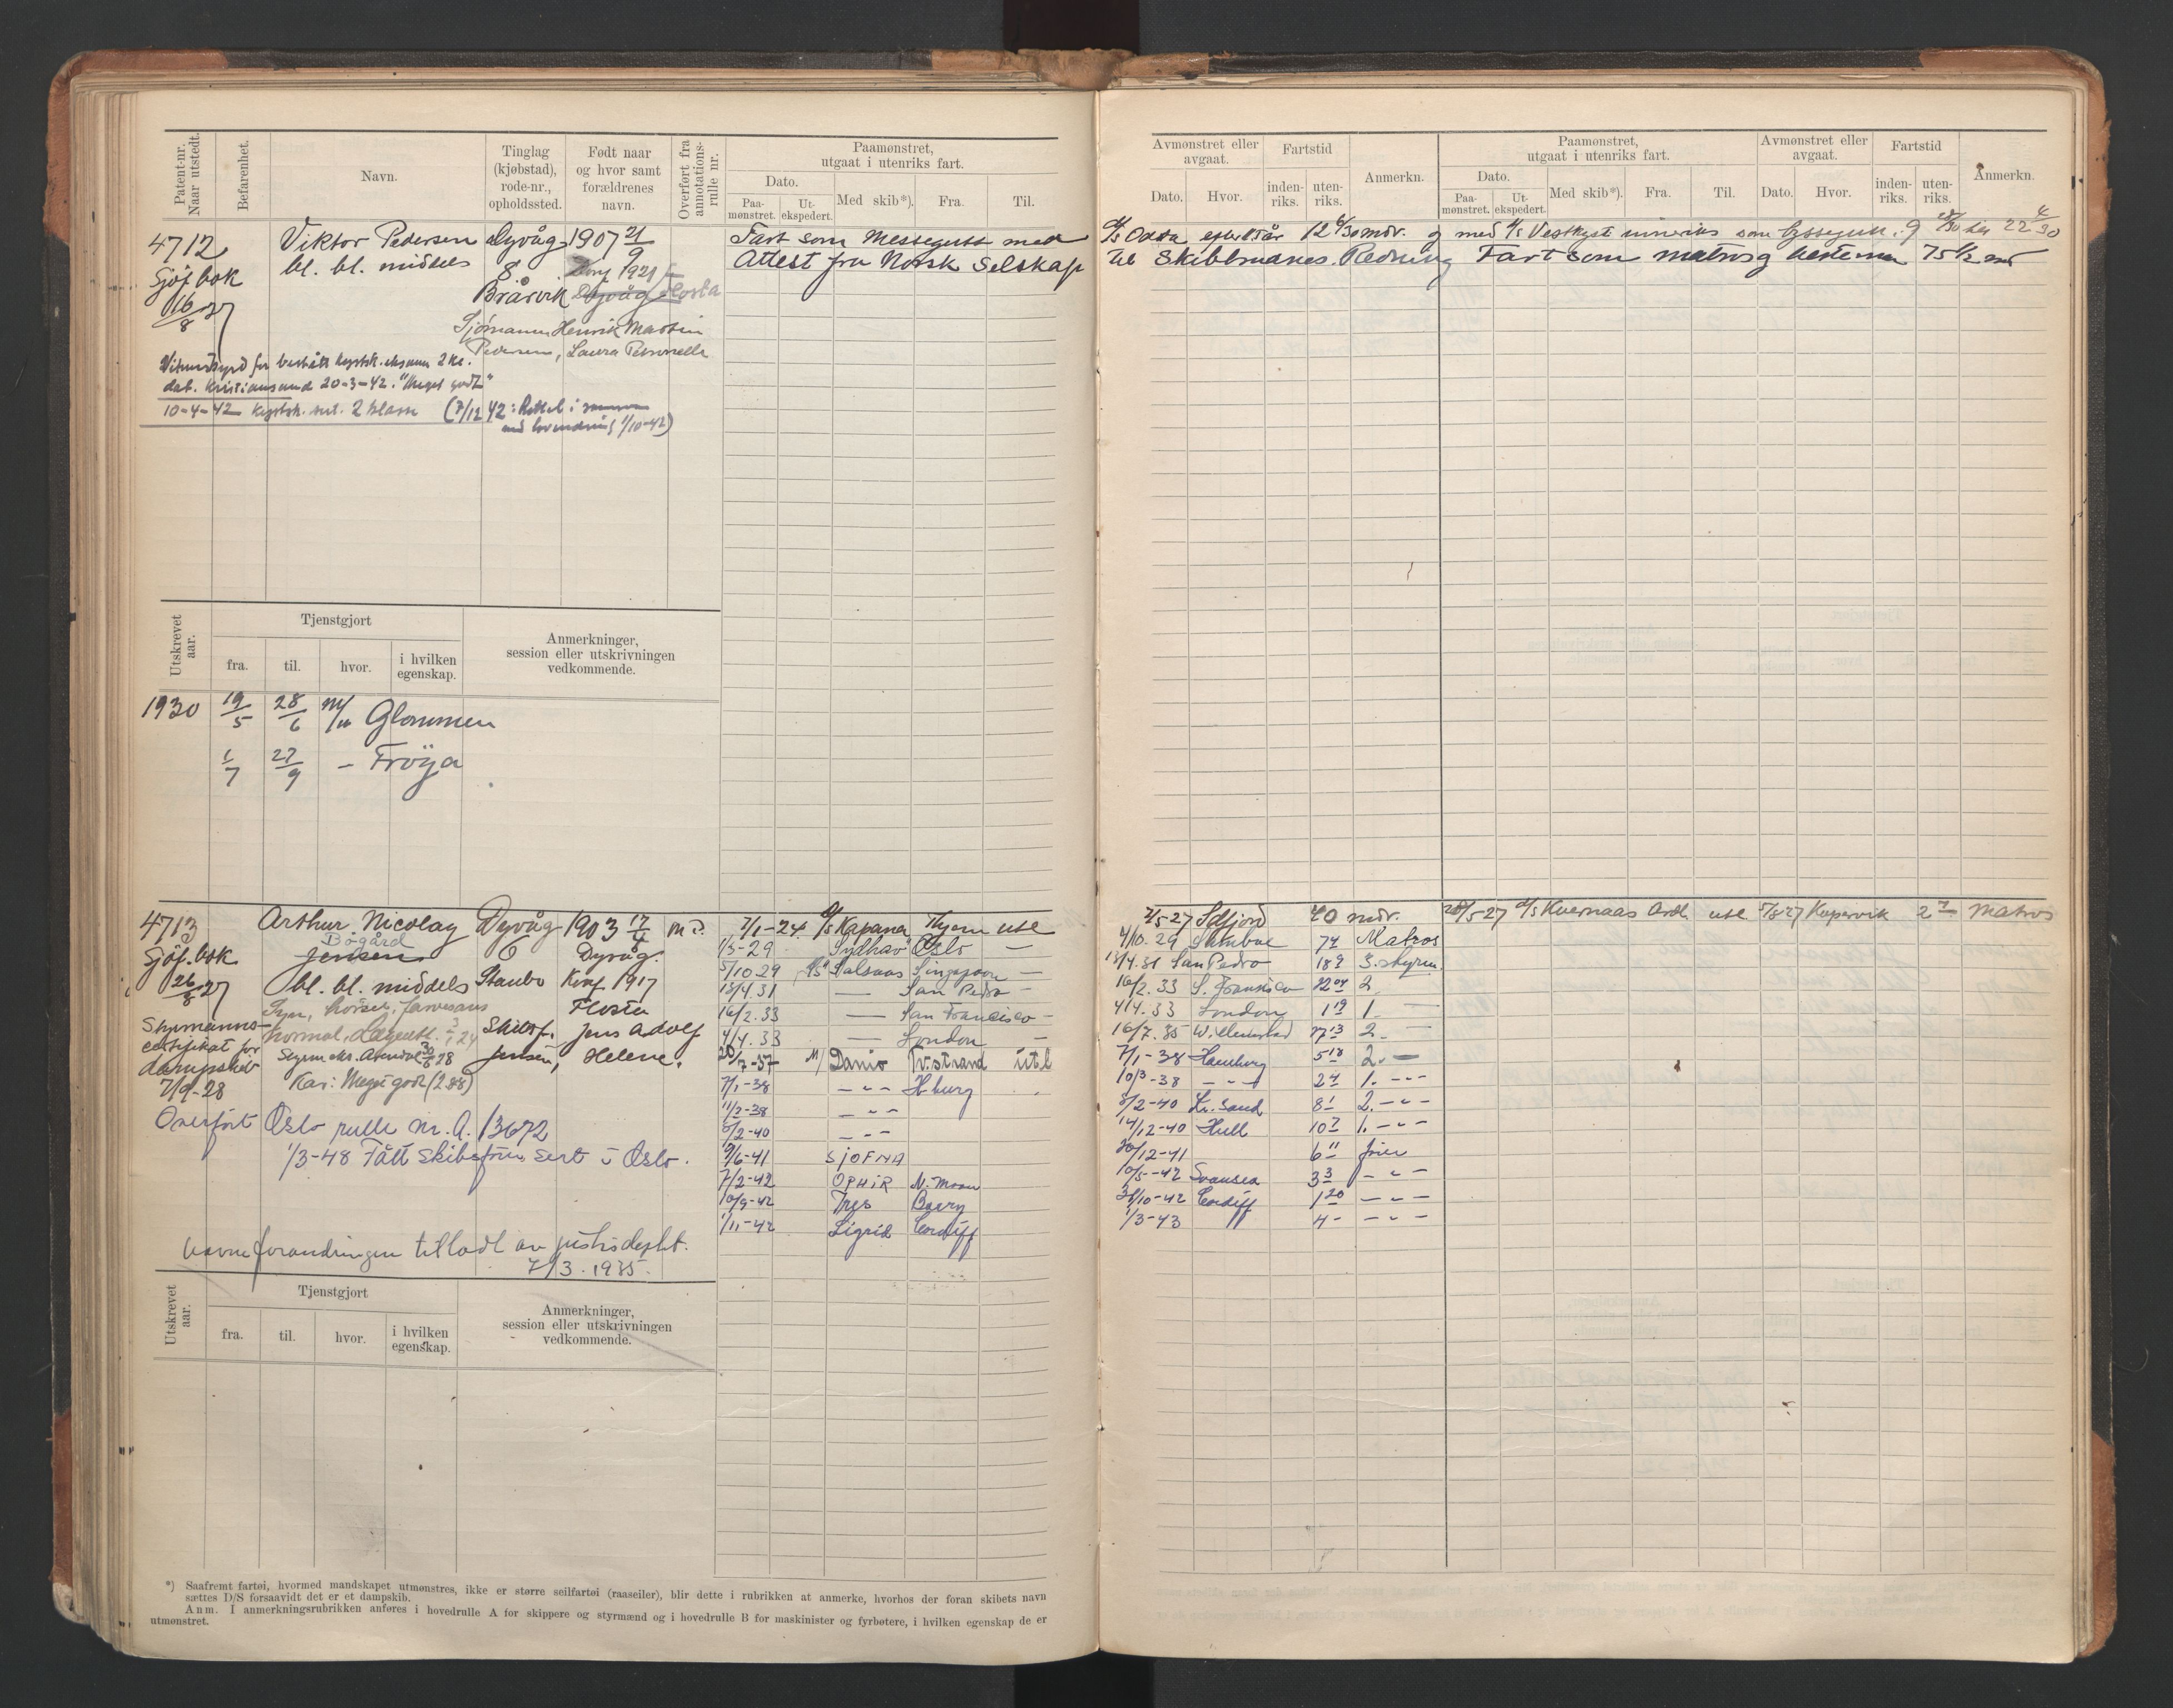 Patent-nr. Naar utstedt.
Befarenhet.
Navn.
Tinglag (kjøbstad), rode-nr., opholdssted.
Født naar og hvor samt forældrenes navn.
Overført fra annotations-rulle nr.
Paamønstret, utgaat i utenriks fart.
Dato.
Paa-mønstret.
Ut-ekspedert.
Med skib*).
Fra.
Til.
Avmønstret eller avgaat.
Dato.
Hvor.
Fartstid
inden-riks.
uten-riks.
Anmerkn.
Paamønstret, utgaat i utenriks fart.
Dato.
Paa-mønstret.
Ut-ekspedert.
Med skib*).
Fra.
Til.
Avmønstret eller avgaat.
Dato.
Hvor.
Fartstid
inden-riks.
uten-riks.
Anmerkn.
4712 Viktor Pedersen Dyvåg 1907 21/9
Sjöf. bok bl. bl. middels 8 1921
16/8 27 Bråsvik Dyvåg Flosta
Sjömann Henrik Martin
Pedersen, Laura Petronella
dat. Kristiansund 20-3-42. "Meget godt"
10-4-42 kystsk. sert. 2 klasse (7/12 42: Rettet i
1/10-42)
Fart som Messegutt med
Attest fra Norsk Selskap
D/S Odda 12 mdr. og med D/S Vestkyst som
til Skibbrudnes Redning Fart som matros og bestemann 75 1/2 mdr
Utskrevet aar.
Tjenstgjort
fra.
til.
hvor.
i hvilken egenskap.
Anmerkninger, session eller utskrivningen vedkommende.
1930 19/5 28/6 Glommen
1/7 27/9 – Fröya
4713 Arthur Nicolay Dyvåg 1903 17/4
Bøgård
Sjöf. bok Jensen 6 Dyvåg.
26/8 27 bl. bl. middels Staubo Konf 1917
Syn, hörsel, farvesans Flosta
Styrmanns- normal, Lægeatt. Skibsf. Jens Adolf
certifikat for Styrm. eks. Arendal 28 Jensen, Helene.
dampskib
7/9-28 Kar: Meget godt (288)
Overfört Oslo rulle Nr. A. 13672
1/3-48 Fått Skibsförer sert i Oslo.
navneforandringen tilladt av justisdeptet.
7/3. 1935.
7/1-24 D/S Kapana Hjem utl
1/3-29 "Sydhav" Oslo –
5/10 29 Salsaas Singapoore –
13/4.31 — San Pedro –
16/2.33 — San Francisco –
4/4.33 — London –
20/7-37 M/ Danio Tv.strand utl
7/1-38 – " – Hburg
11/2-38 – " –
5/2-40 – " –
9/6-41 SJOFNA
7/2-42 OPHIR N. Moon
10/9-42 Tres Barry
1/11-42 Sigrid Cardiff
40 mdr. D/S Kvernaas Ardl utl 5/8 27 Kopervik Matros
4/10.29 74 Matros
13/4.31 San Pedro 3. styrm.
16/2.33 S. Francisco 2
4/4.33 London 1 —
16/7.35 2. —
7/1-38 Hamburg 5 18 2. —
10/3-38 – " – 2 4 1. – " –
5/2-40 Kr. Sand 8 1 2. – " –
14/12-40 Hull 10 7 1. – " –
20/12-41 6 11 förer
10/5-42 Swansea 3 3 – " –
31/10-42 Cardiff 1 20 – " –
1/3-43 4 – – " –
Utskrevet aar.
Tjenstgjort
fra.
til.
hvor.
i hvilken egenskap.
Anmerkninger, session eller utskrivningen vedkommende.
*) Saafremt fartøi, hvormed mandskapet utmønstres, ikke er større seilfartøi (raaseiler), blir dette i rubrikken at anmerke, hvorhos der foran skibets navn
sættes D/S forsaavidt det er et dampskib.
Anm. I anmerkningsrubrikken anføres i hovedrulle A for skippere og styrmænd og i hovedrulle B for maskinister og fyrbøtere, i hvilken egenskap de er
utmønstret.